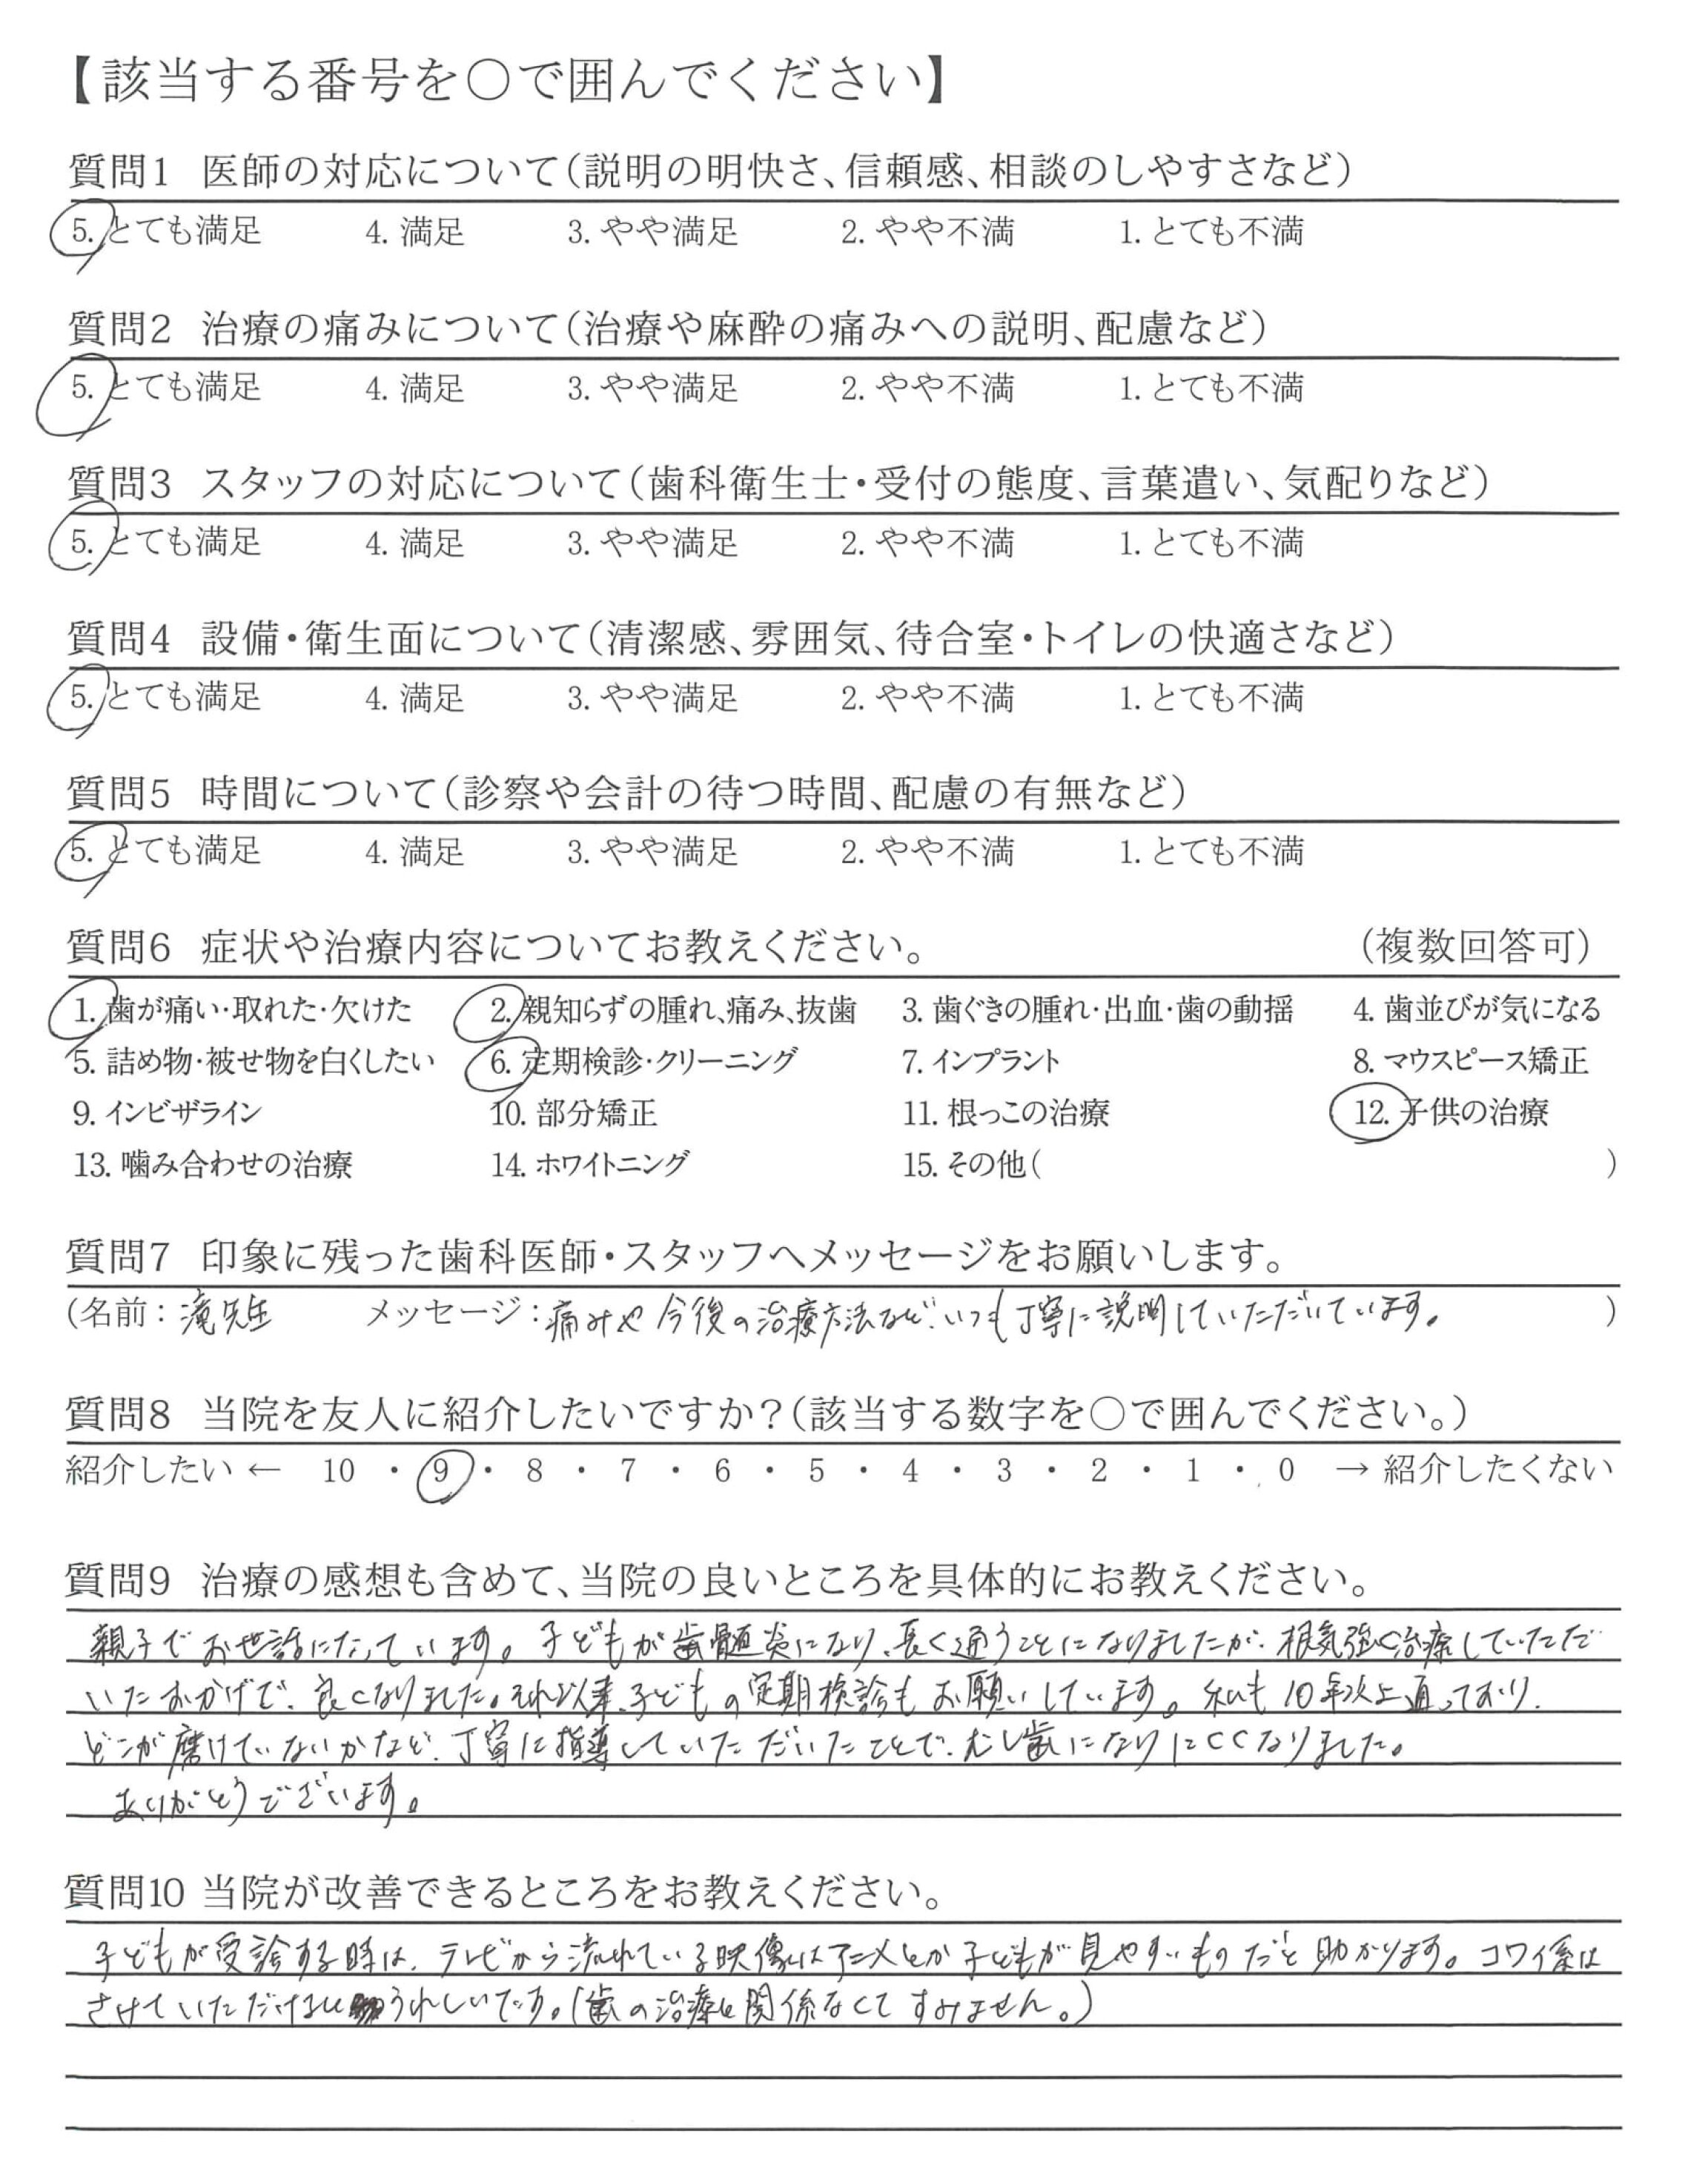 【該当する番号を〇で囲んでください】
質問1 医師の対応について(説明の明快さ、信頼感、相談のしやすさなど)
5. とても満足 4. 満足 3. やや満足 2. やや不満 1. とても不満
質問2 治療の痛みについて(治療や麻酔の痛みへの説明、配慮など)
5. とても満足 4. 満足 3. やや満足 2. やや不満 1. とても不満
質問3 スタッフの対応について(歯科衛生士・受付の態度、言葉遣い、気配りなど)
5. とても満足 4. 満足 3. やや満足 2. やや不満 1. とても不満
質問4 設備・衛生面について(清潔感、雰囲気、待合室・トイレの快適さなど)
5. とても満足 4. 満足 3. やや満足 2. やや不満 1. とても不満
質問5 時間について(診察や会計の待つ時間、配慮の有無など)
5. とても満足 4. 満足 3. やや満足 2. やや不満 1. とても不満
質問6 症状や治療内容についてお教えください。 (複数回答可)
1. 歯が痛い・取れた・欠けた 2. 親知らずの腫れ、痛み、抜歯 3. 歯ぐきの腫れ・出血・歯の動揺 4. 歯並びが気になる
5. 詰め物・被せ物を白くしたい 6. 定期検診・クリーニング 7. インプラント 8. マウスピース矯正
9. インビザライン 10. 部分矯正 11. 根っこの治療 12. 子供の治療
13. 噛み合わせの治療 14. ホワイトニング 15. その他( )
質問7 印象に残った歯科医師・スタッフへメッセージをお願いします。
(名前：滝先生 メッセージ：痛みや今後の治療方法など、いつも丁寧に説明していただいています。 )
質問8 当院を友人に紹介したいですか?(該当する数字を〇で囲んでください。)
紹介したい ← 10 ・ 9 ・ 8 ・ 7 ・ 6 ・ 5 ・ 4 ・ 3 ・ 2 ・ 1 ・ 0 → 紹介したくない
質問9 治療の感想も含めて、当院の良いところを具体的にお教えください。
親子でお世話になっています。子どもが歯髄炎になり、長く通うことになりましたが、根気強く治療していただ
いたおかげで、良くなりました。それ以来、子どもの定期検診もお願いしています。私も10年以上通っており、
どこが磨けていないかなど、丁寧に指導していただいたことで、むし歯になりにくくなりました。
ありがとうございます。
質問10 当院が改善できるところをお教えください。
子どもが受診する時は、テレビから流れている映像はアニメとか子どもが見やすいものだと助かります。コワイ系は
さけていただけるとうれしいです。(歯の治療と関係なくてすみません。)